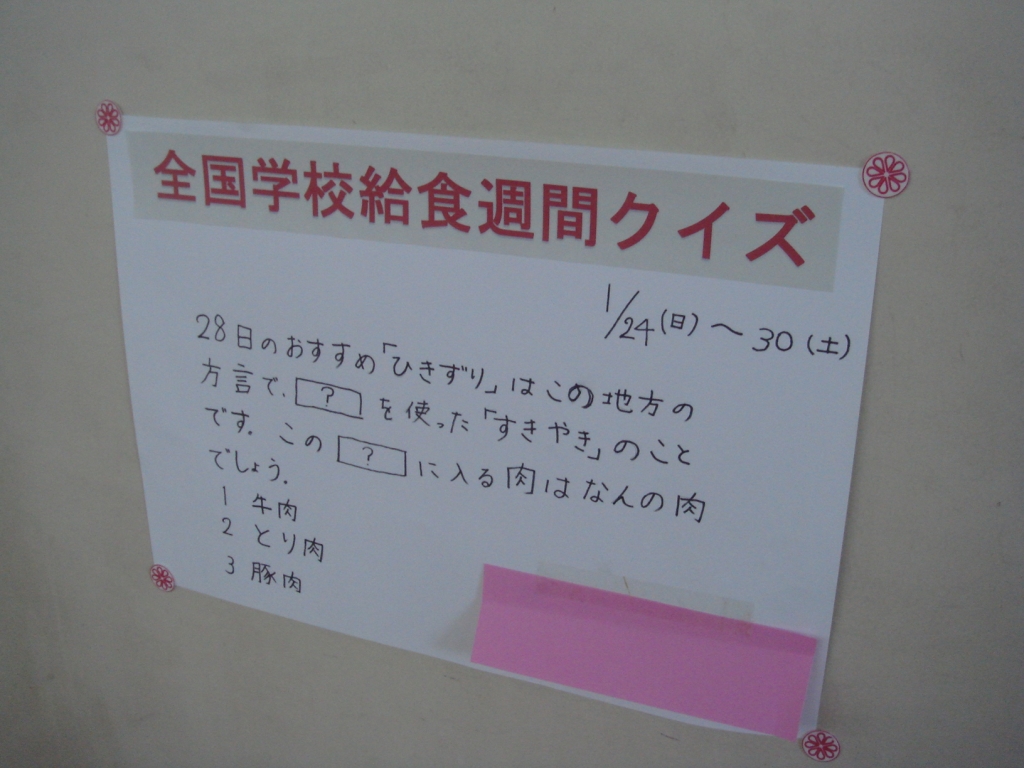 全国学校給食週間クイズ
1/24(日)〜30(土)
28日のおすすめ「ひきずり」はこの地方の
方言で、?を使った「すきやき」のこと
です。この?に入る肉はなんの肉
でしょう。
1 牛肉
2 とり肉
3 豚肉